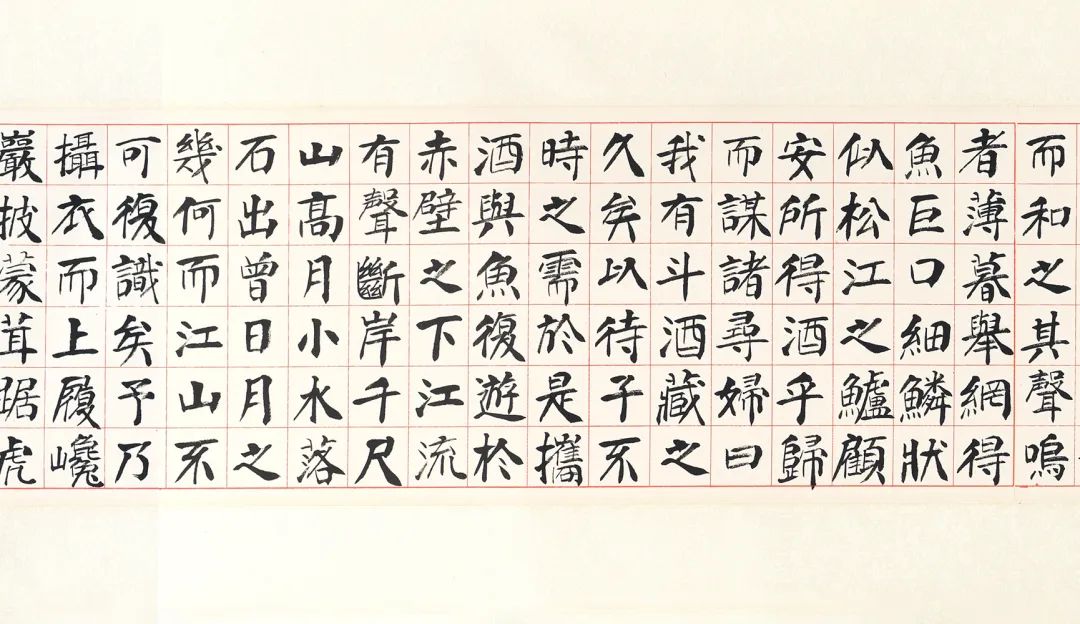 而和之其聲嗚
者薄暮舉網得
魚巨口細鱗狀
似松江之鱸顧
安所得酒乎歸
而謀諸尋婦曰
我有斗酒藏之
久矣以待子不
時之需於是攜
酒與魚復遊於
赤壁之下江流
有聲斷岸千尺
山高月小水落
石出曾日月之
幾何而江山不
可復識矣予乃
攝衣而上履巉
巖披蒙茸踞虎